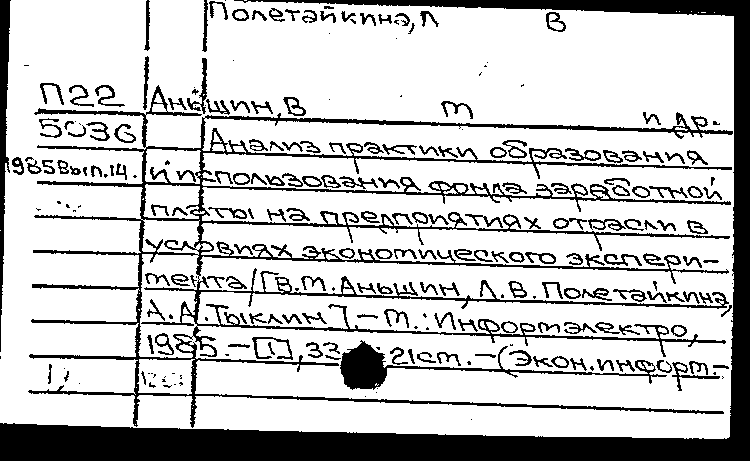 Полетайкина, Л В
П22 Аньшин, В М и др.
5036 Анализ практики образования
1985 Вып.14. и использования фонда заработной
платы на предприятиях отрасли в
условиях экономического экспери-
мента / [В.М. Аньшин, Л.В. Полетайкина,
А.А. Тыклин]. - М.: Информэлектро,
1985. - [1], 33 21 см. - (Экон. информ.-